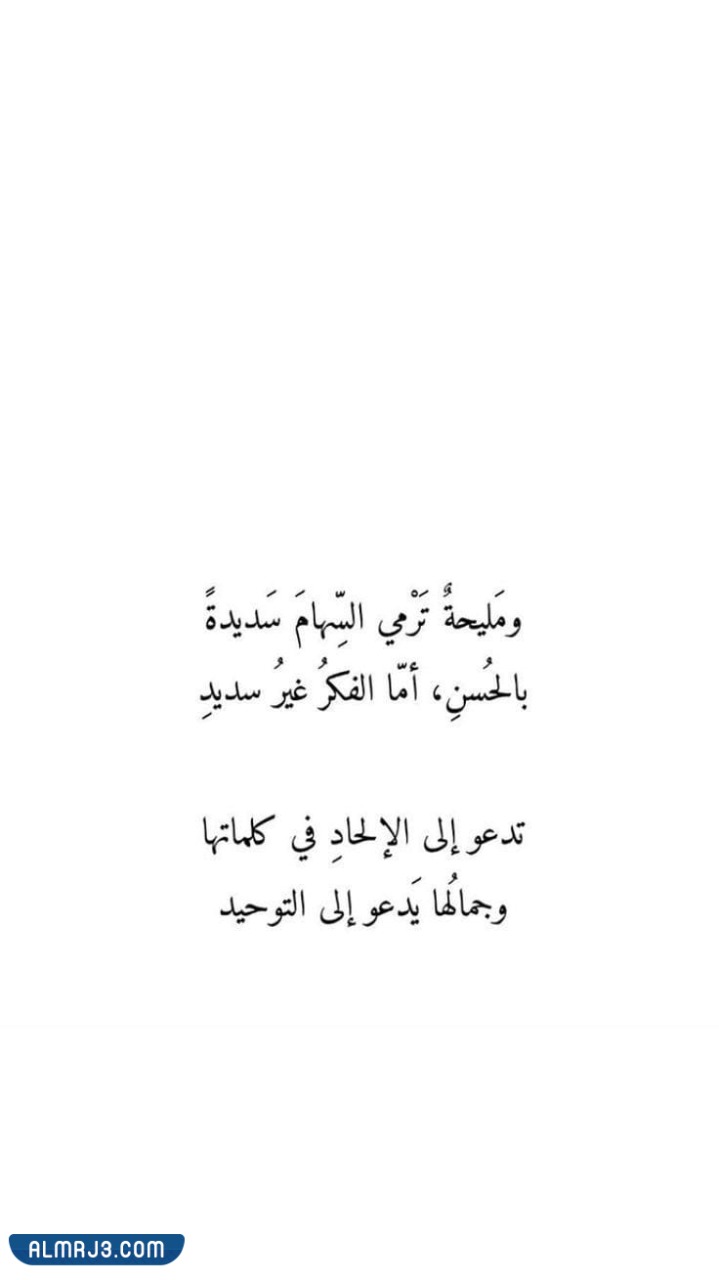 ومَليحةٌ تَرْمي السِّهامَ سَديدةً
بالحُسنِ، أمّا الفكرُ غيرُ سديدِ
تدعو إلى الإلحادِ في كلماتها
وجمالُها يَدعو إلى التوحيد
ALMRJ3.COM